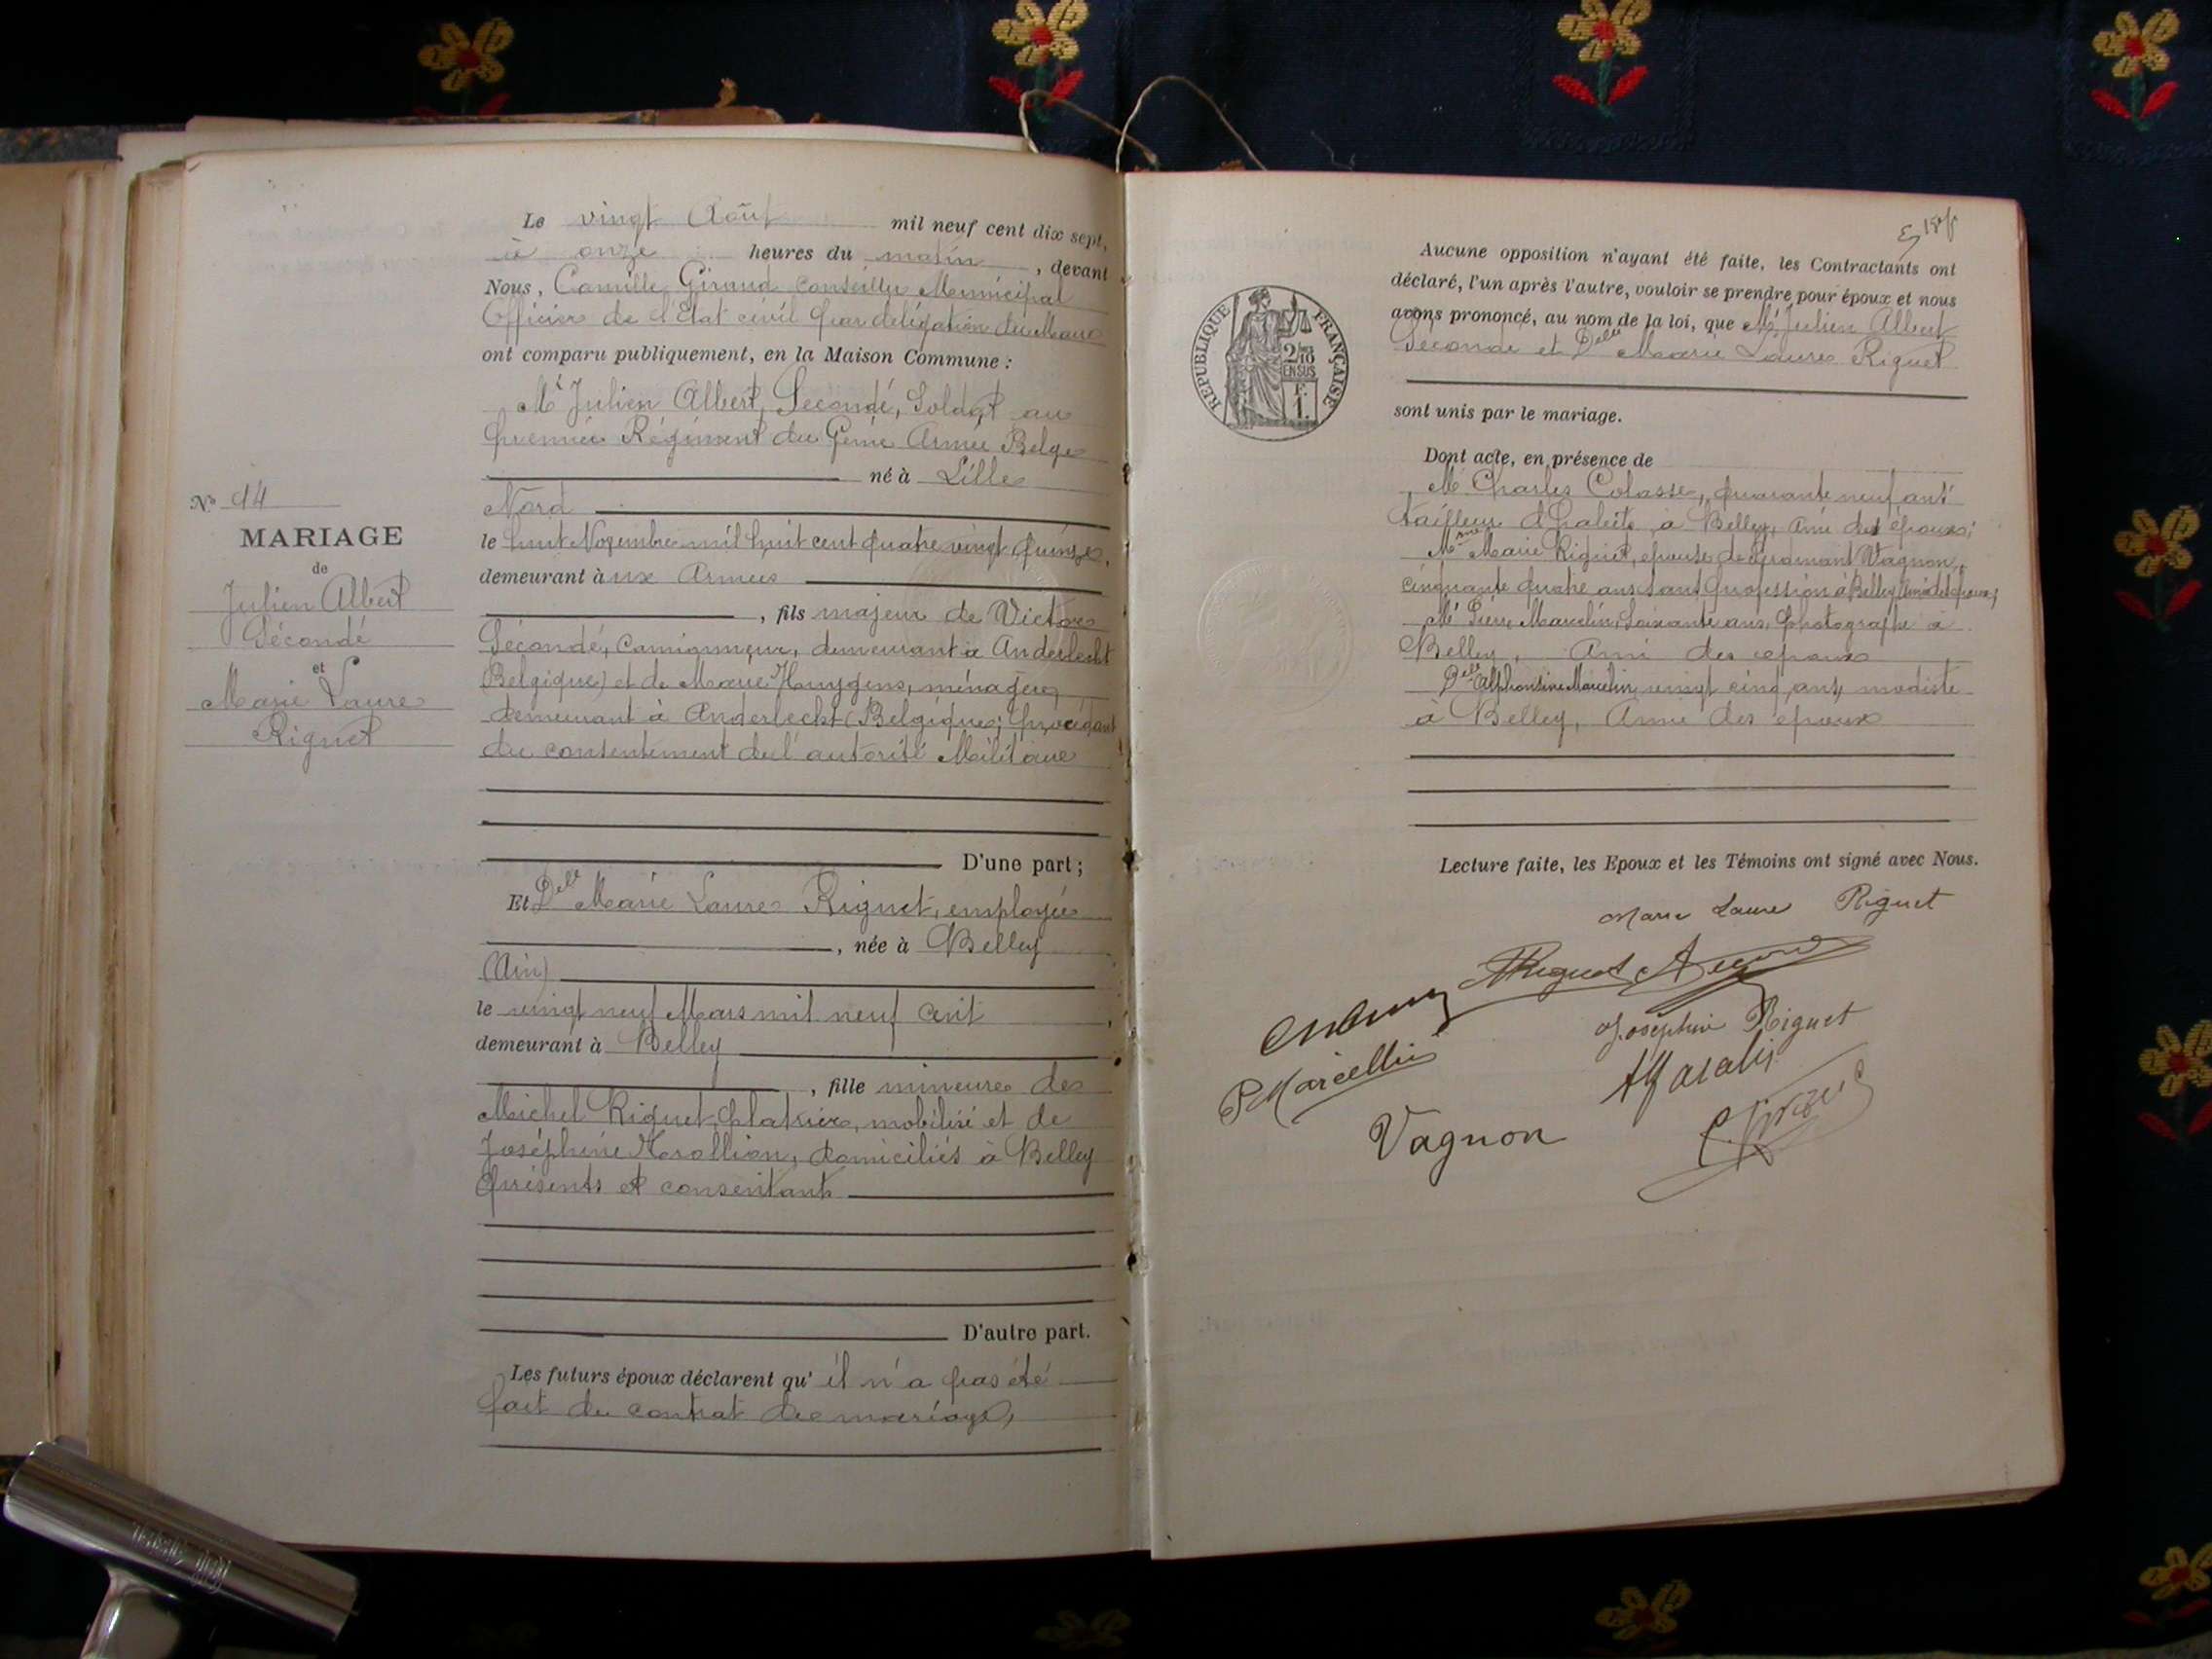 Le vingt Août mil neuf cent dix sept,
à onze heures du matin, devant
Nous, Camille Giraud conseiller Municipal
Officier de l'Etat civil par délégation du Maire
ont comparu publiquement, en la Maison Commune :
Mr Julien Albert Sécondé, Soldat au
premier Régiment du Génie Armée Belge
né à Lille
Nord
le huit Novembre mil huit cent quatre vingt quinze,
demeurant aux Armées
, fils majeur de Victor
Sécondé, Camionneur, demeurant à Anderlecht
Belgique) et de Marie Huygens, ménagère,
demeurant à Anderlecht (Belgique; procédant
du consentement de l'autorité Militaire
D'une part ;
Nº 14
MARIAGE
de
Julien Albert
Sécondé
et
Marie Laure
Riguet
Et Delle Marie Laure Riguet, employée
, née à Belley
(Ain)
le vingt neuf Mars mil neuf cent
demeurant à Belley
, fille mineure de
Michel Riguet, platrier, mobilisé et de
Joséphine domiciliés à Belley
présents et consentants
D'autre part.
Les futurs époux déclarent qu' il n'a pas été
fait de contrat de mariage,
Aucune opposition n'ayant été faite, les Contractants ont
déclaré, l'un après l'autre, vouloir se prendre pour époux et nous
avons prononcé, au nom de la loi, que Mr Julien Albert
Séconde et Delle Marie Laure Riguet
sont unis par le mariage.
REPUBLIQUE FRANÇAISE
2/10
EN SUS
F.
1.
Dont acte, en présence de
Mr Charles Colasse, quarante neuf ans
tailleur d'habits à Belley, Ami des époux;
Mme Marie Riguet, épouse de Vagnon,
cinquante quatre ans sans profession à Belley amie des époux;
Mr Pierre Marcelin, Soixante ans, photographe à
Belley, Ami des époux
Delle Alphonsine Marcelin vingt cinq ans, modiste
à Belley, Amie des époux
Lecture faite, les Epoux et les Témoins ont signé avec Nous.
Marie Laure Riguet
Riguet
Joséphine Riguet
P Marcellin
Vagnon